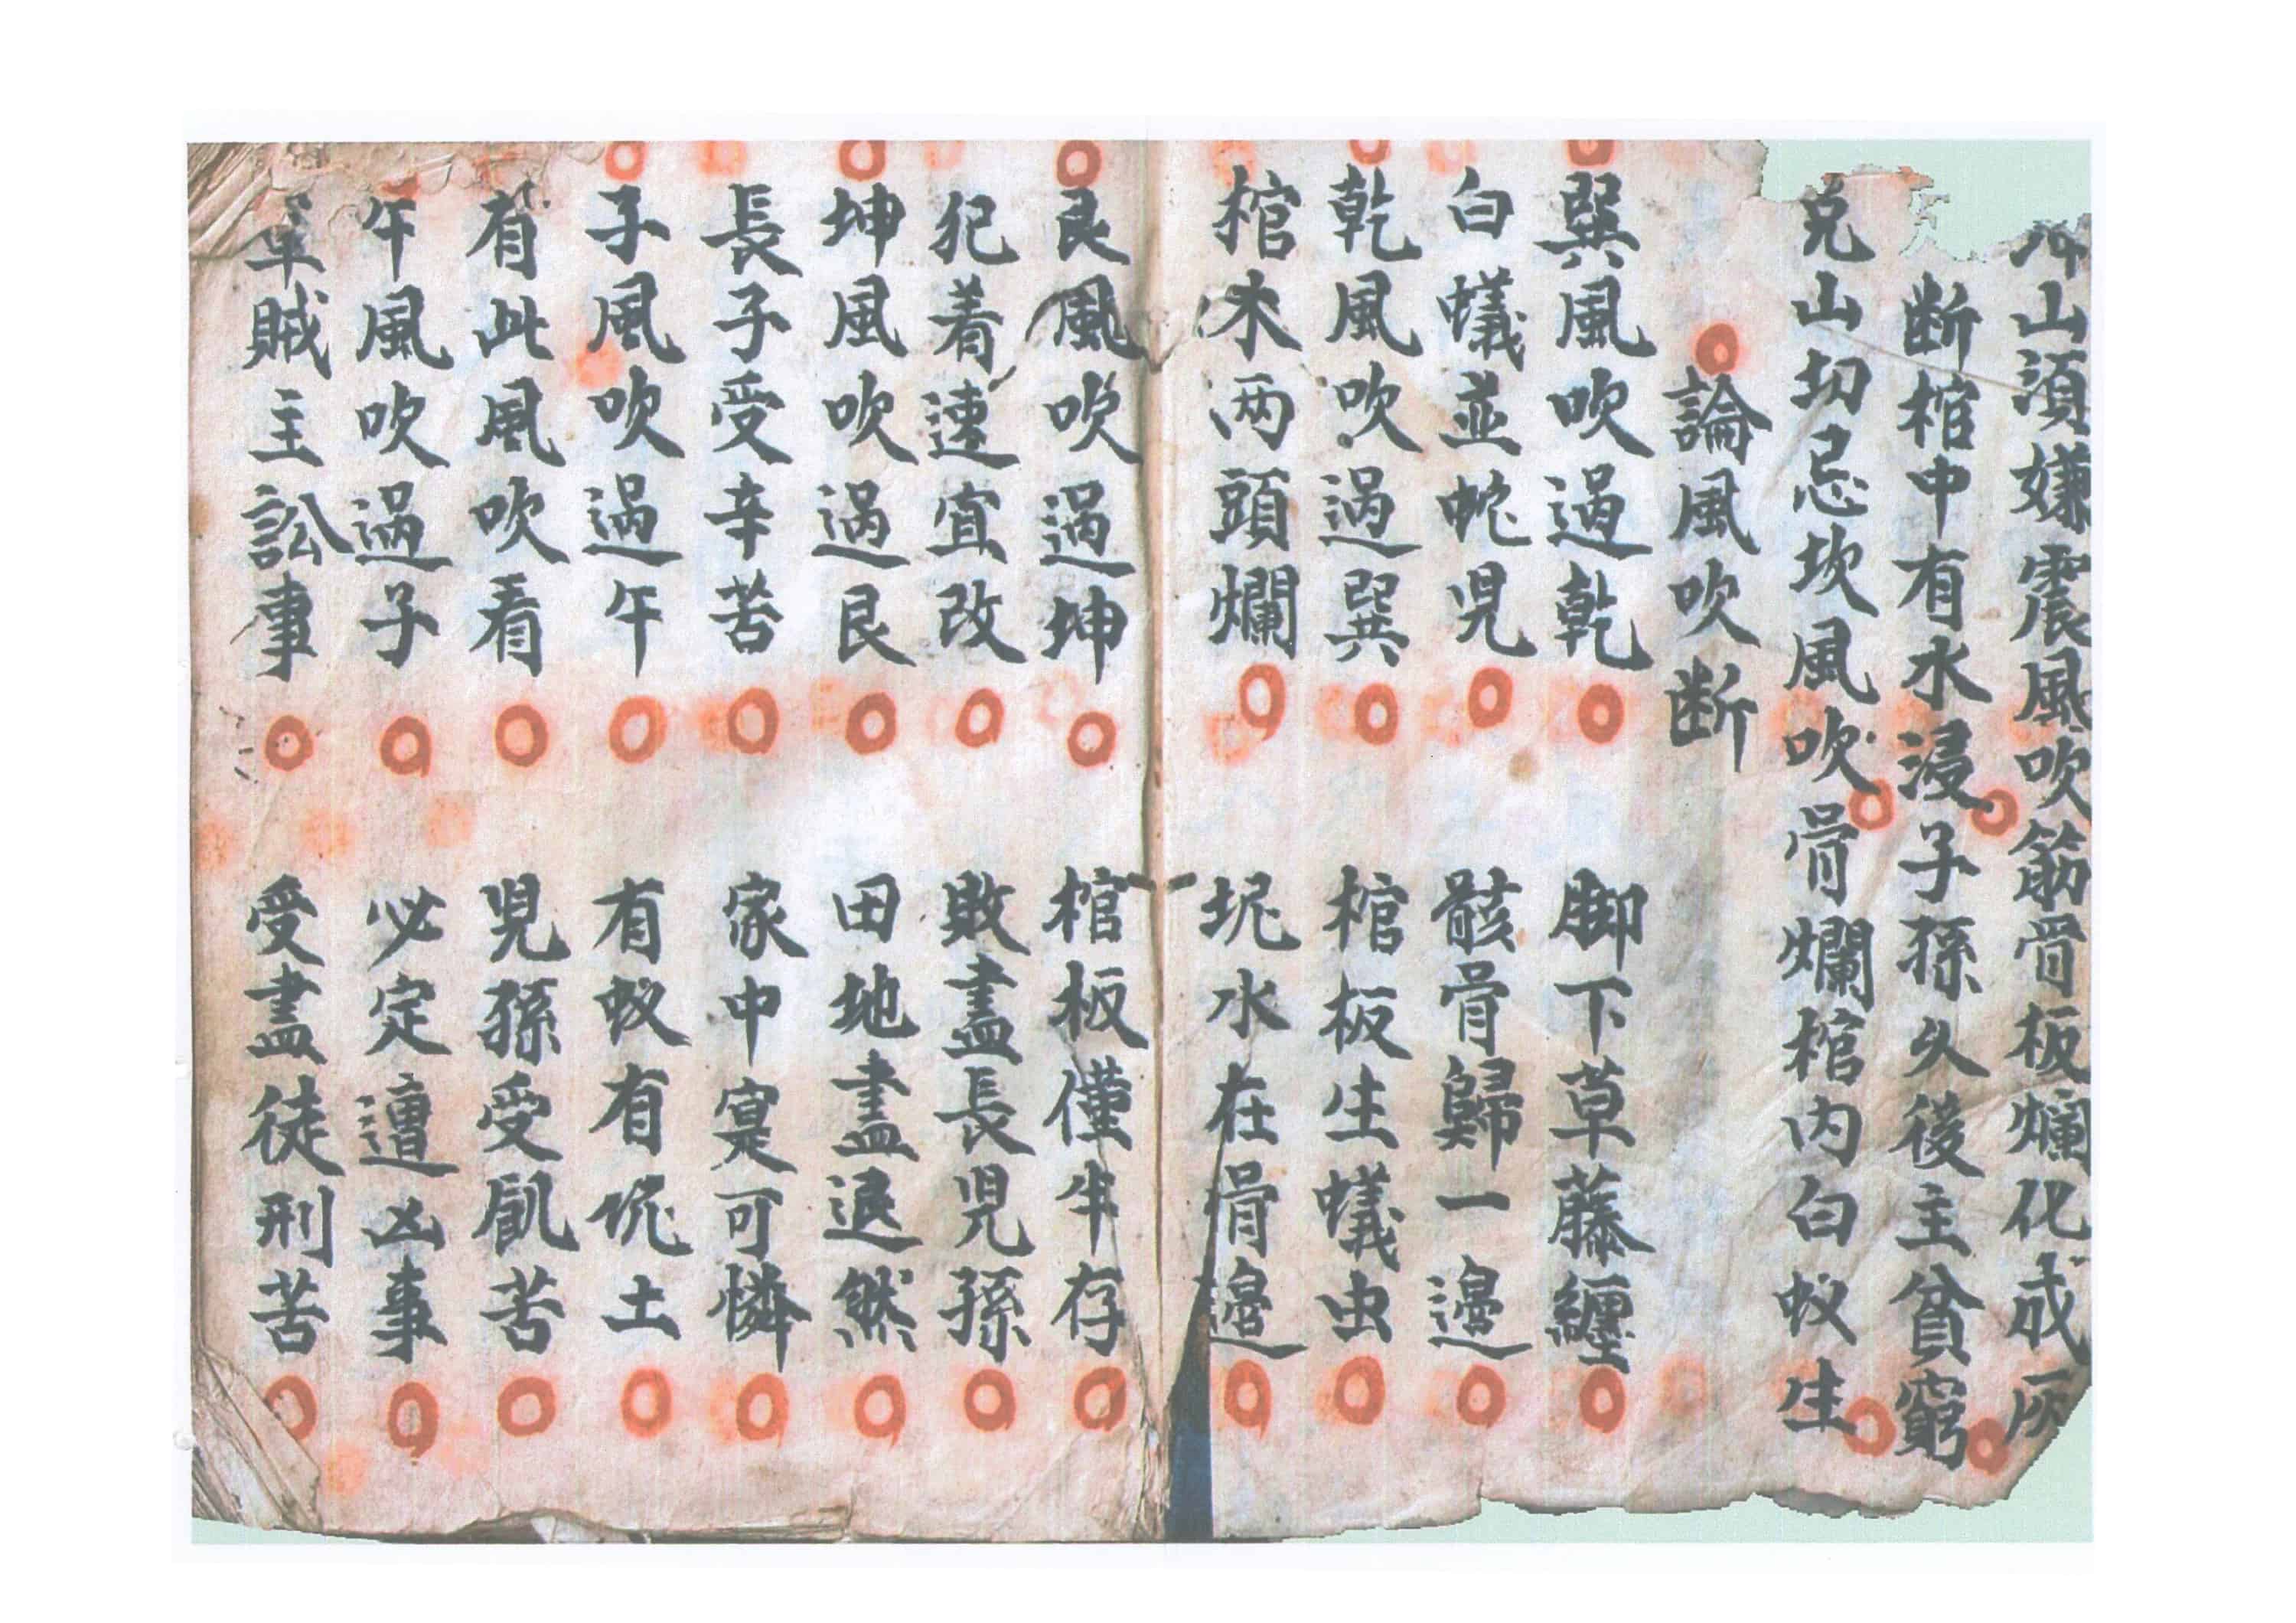 山須嫌震風吹筋骨板爛化成灰
断棺中有水浸子孫久後主貧窮
兌山切忌坎風吹骨爛棺内白蚁生
論風吹断
巽風吹過乾 脚下草藤纏
白蟻並蛇児 骸骨歸一邊
乾風吹過巽 棺板生蟻虫
棺木两頭爛 坭水在骨邊
艮風吹過坤 棺板僅半存
犯着速宜改 敗盡長児孫
坤風吹過艮 田地盡退然
長子受辛苦 家中寞可憐
子風吹過午 有蚁有坭土
有此風吹看 児孫受飢苦
午風吹過子 必定遭凶事
軍賊主訟事 受盡徒刑苦